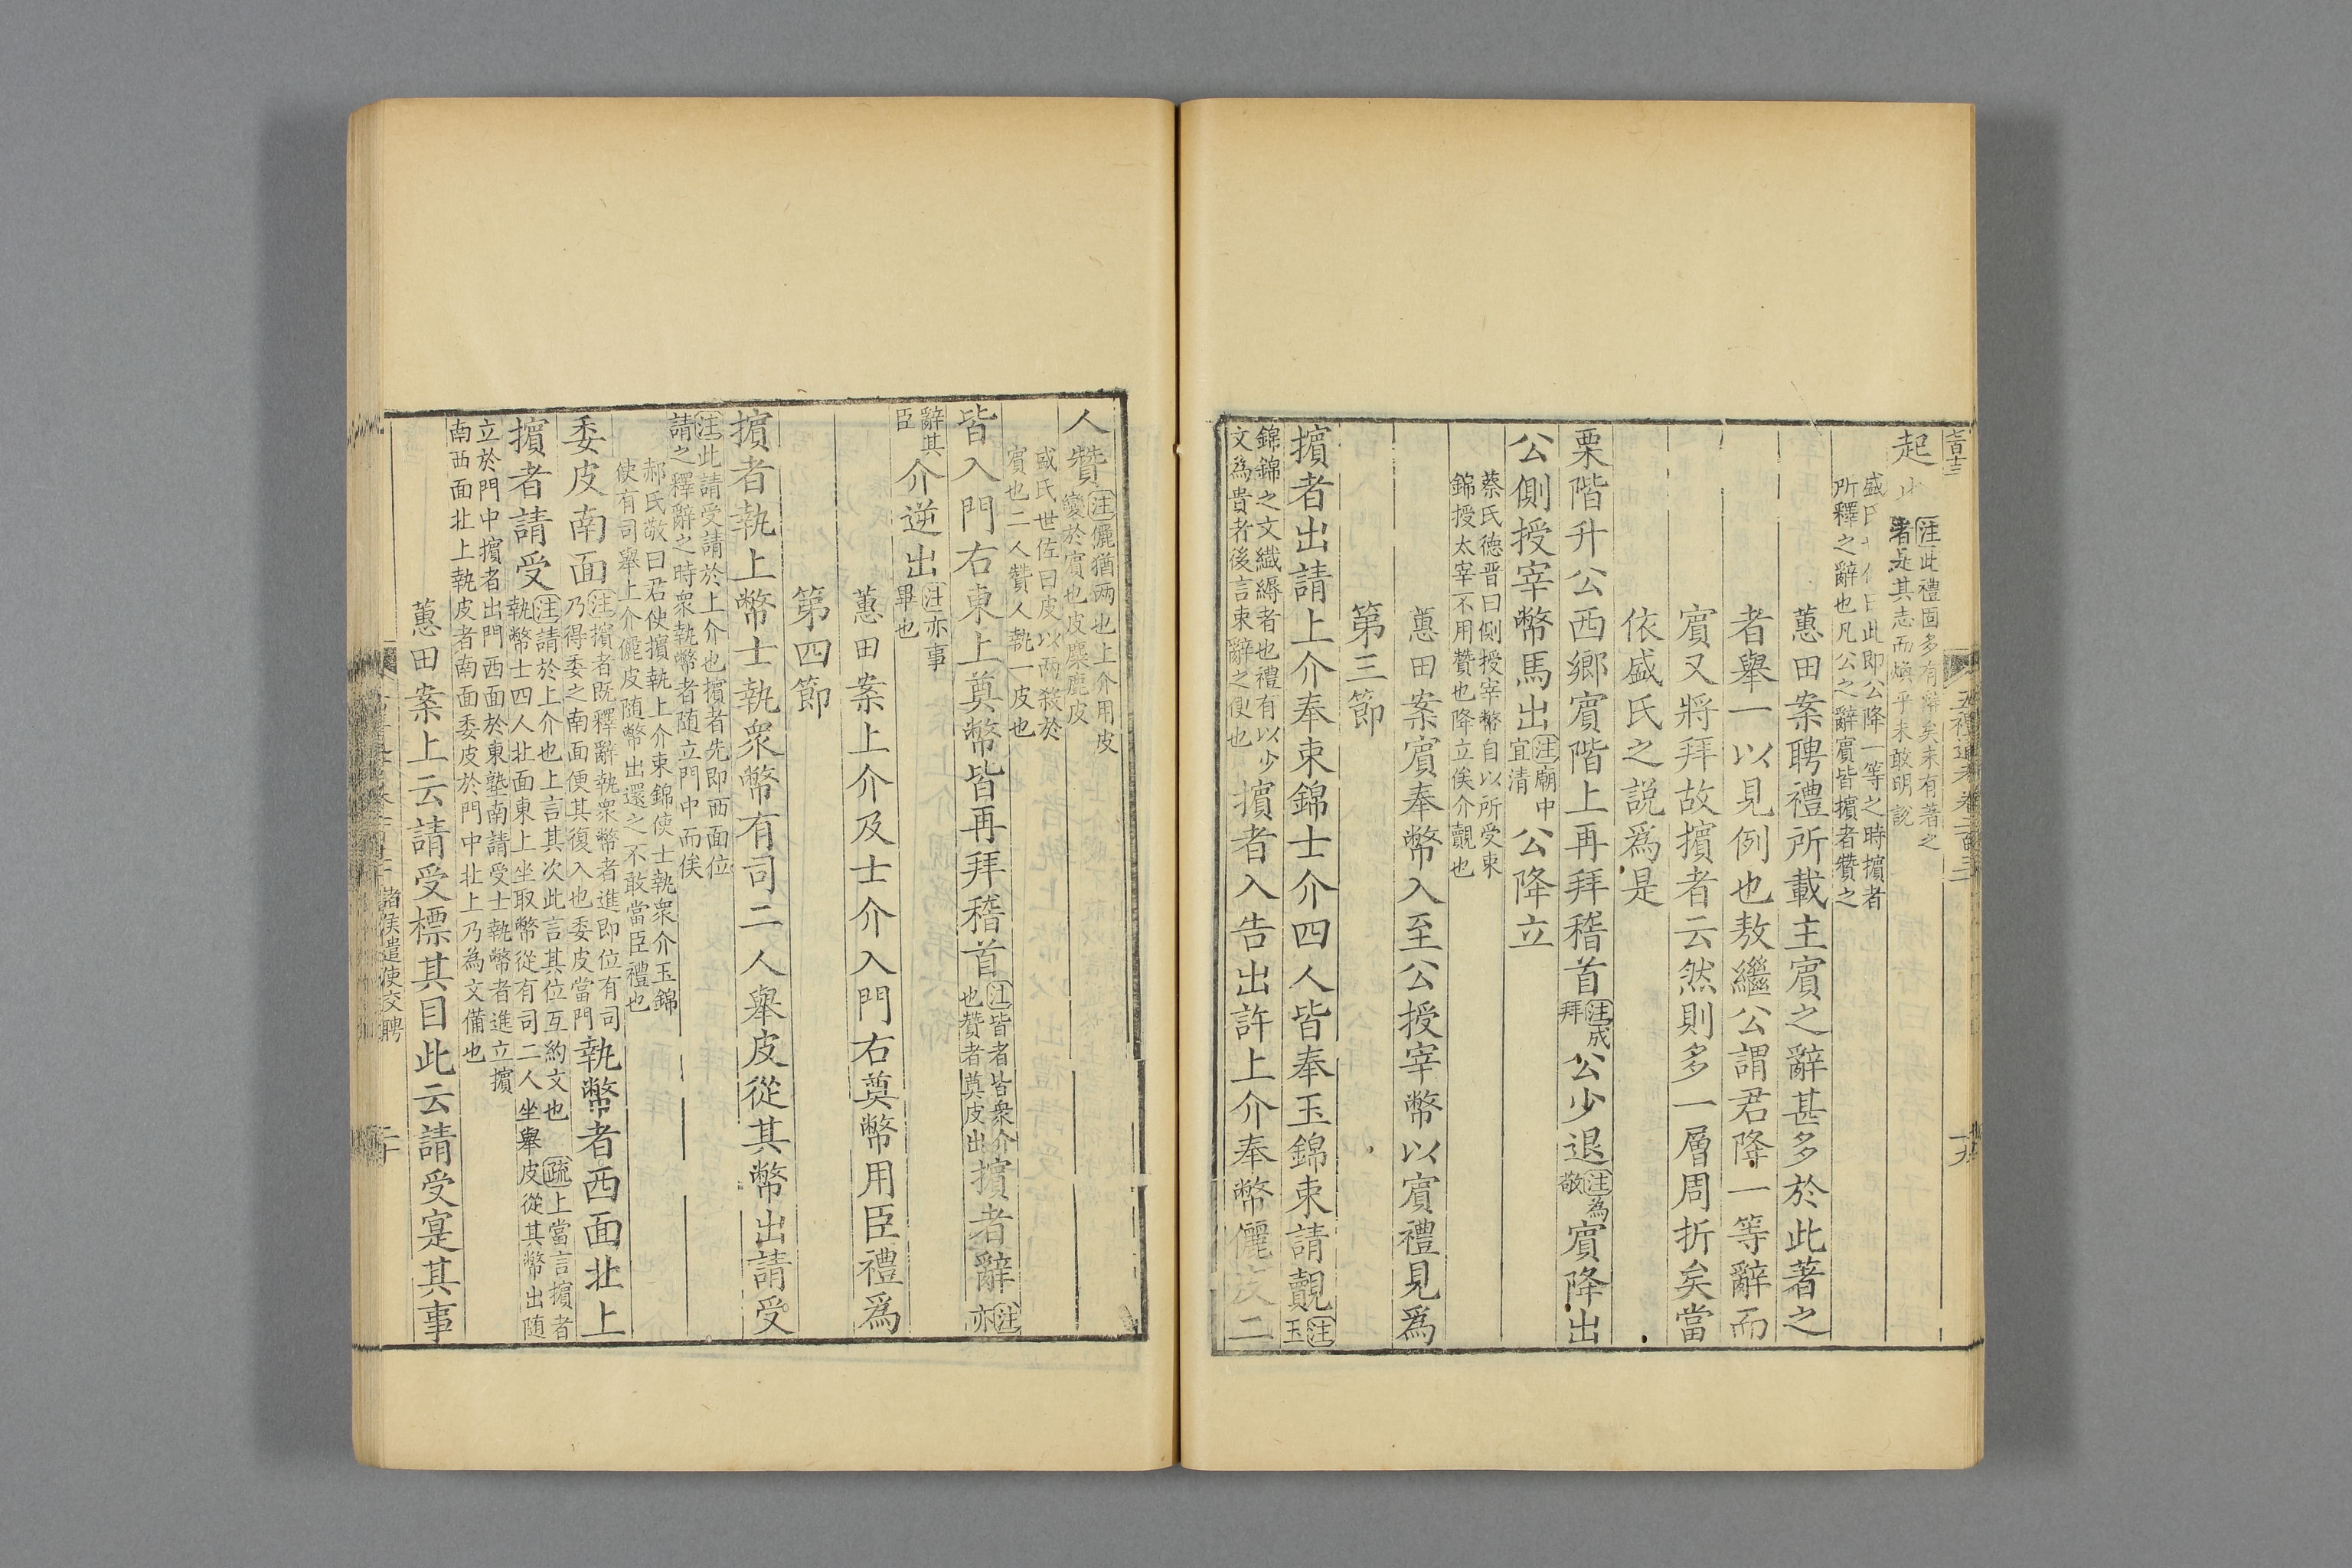 起 注此禮固多有辭矣未有著之
者是其志而煥乎未敢明說
盛氏 此即公降一等之時擯者
所釋之辭也凡公之辭賓皆擯者贊之
蕙田案聘禮所載主賓之辭甚多於此著之
者舉一以見例也敖繼公謂君降一等辭而
賓又將拜故擯者云然則多一層周折矣當
依盛氏之説爲是
栗階升公西鄉賓階上再拜稽首注成拜公少退注為敬賓降出
公側授宰幣馬出注廟中宜清公降立
蔡氏德晋曰側授宰幣自以所受束
錦授太宰不用贊也降立俟介覿也
蕙田案賓奉幣入至公授宰幣以賓禮見爲
第三節
擯者出請上介奉束錦士介四人皆奉玉錦束請覿注玉
錦錦之文纎縟者也禮有以少
文為貴者後言束辭之便也擯者入告出許上介奉幣儷皮二
五禮通考卷二百三
十九
人贊注儷猶兩也上介用皮
變於賓也皮麋鹿皮
盛氏世佐曰皮以兩殺於
賓也二人贊人執一皮也
皆入門右東上奠幣皆再拜稽首注皆者皆衆介
也贊者奠皮出擯者辭注亦
辭其臣介逆出注亦事畢也
蕙田案上介及士介入門右奠幣用臣禮爲
第四節
擯者執上幣士執衆幣有司二人舉皮從其幣出請受
注此請受請於上介也擯者先即西面位
請之釋辭之時衆執幣者随立門中而俟
郝氏敬曰君使擯執上介束錦使士執衆介玉錦
使有司舉上介儷皮随幣出還之不敢當臣禮也
委皮南面注擯者既釋辭執衆幣者進即位有司
乃得委之南面便其復入也委皮當門執幣者西面北上
擯者請受注請於上介也上言其次此言其位互約文也 疏上當言擯者
執幣士四人北面東上坐取幣從有司二人坐舉皮從其幣出随
立於門中擯者出門西面於東塾南請受士執幣者進立擯
南西面北上執皮者南面委皮於門中北上乃為文備也
蕙田案上云請受標其目此云請受寔其事
諸侯遣使交聘
二十